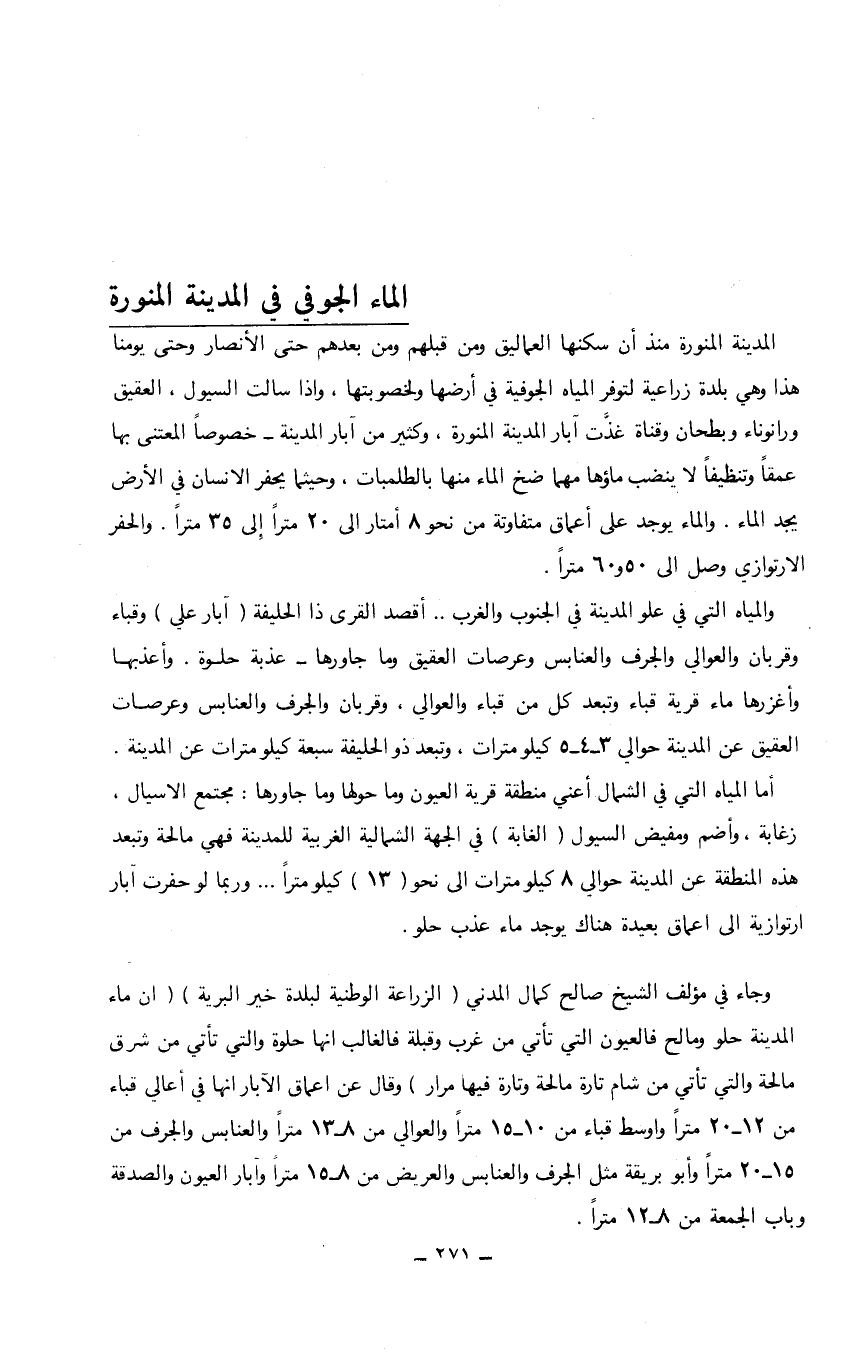 الماء الجوفي في المدينة المنورة
المدينة المنورة منذ أن سكنها العماليق ومن قبلهم ومن بعدهم حتى الأنصار وحتى يومنا
هذا وهي بلدة زراعية لتوفر المياه الجوفية في أرضها ولخصوبتها ، واذا سالت السيول ، العقيق
ورانوناء وبطحان وقناة غذَّت آبار المدينة المنورة ، وكثير من آبار المدينة ـ خصوصاً المعتنى بها
عمقاً وتنظيفاً لا ينضب ماؤها مهما ضخ الماء منها بالطلمبات ، وحيثما يحفر الانسان في الأرض
يجد الماء . والماء يوجد على أعماق متفاوتة من نحو ٨ أمتار الى ٢٠ متراً إلى ٣٥ متراً . والحفر
الارتوازي وصل الى ٥٠و٦٠ متراً .
والمياه التي في علو المدينة في الجنوب والغرب .. أقصد القرى ذا الحليفة ( آبار علي ) وقباء
وقربان والعوالي والجرف والعنابس وعرصات العقيق وما جاورها ـ عذبة حلـوة . وأعذبهـا
وأغزرها ماء قرية قباء وتبعد كل من قباء والعوالي ، وقربان والجرف والعنابس وعرصـات
العقيق عن المدينة حوالي ٣ـ٤ـ٥ كيلومترات ، وتبعد ذو الحليفة سبعة كيلومترات عن المدينة .
أما المياه التي في الشمال أعني منطقة قرية العيون وما حولها وما جاورها : مجتمع الاسيال ،
زغابة ، وأضم ومفيض السيول ( الغابة ) في الجهة الشمالية الغربية للمدينة فهي مالحة وتبعد
هذه المنطقة عن المدينة حوالي ٨ كيلومترات الى نحو ( ١٣ ) كيلومتراً ... وربما لو حفرت آبار
ارتوازية الى اعماق بعيدة هناك يوجد ماء عذب حلو .
وجاء في مؤلف الشيخ صالح كمال المدني ( الزراعة الوطنية لبلدة خير البرية ) ( ان ماء
المدينة حلو ومالح فالعيون التي تأتي من غرب وقبلة فالغالب انها حلوة والتي تأتي من شرق
مالحة والتي تأتي من شام تارة مالحة وتارة فيها مرار ) وقال عن اعماق الآبار انها في أعالي قباء
من ١٢ـ٢٠ متراً واوسط قباء من ١٠ـ١٥ متراً والعوالي من ٨ـ١٣ متراً والعنابس والجرف من
١٥ـ٢٠ متراً وأبو بريقة مثل الجرف والعنابس والعريض من ٨ـ١٥ متراً وآبار العيون والصدقة
وباب الجمعة من ٨ـ١٢ متراً .
ـ ٢٧١ ـ